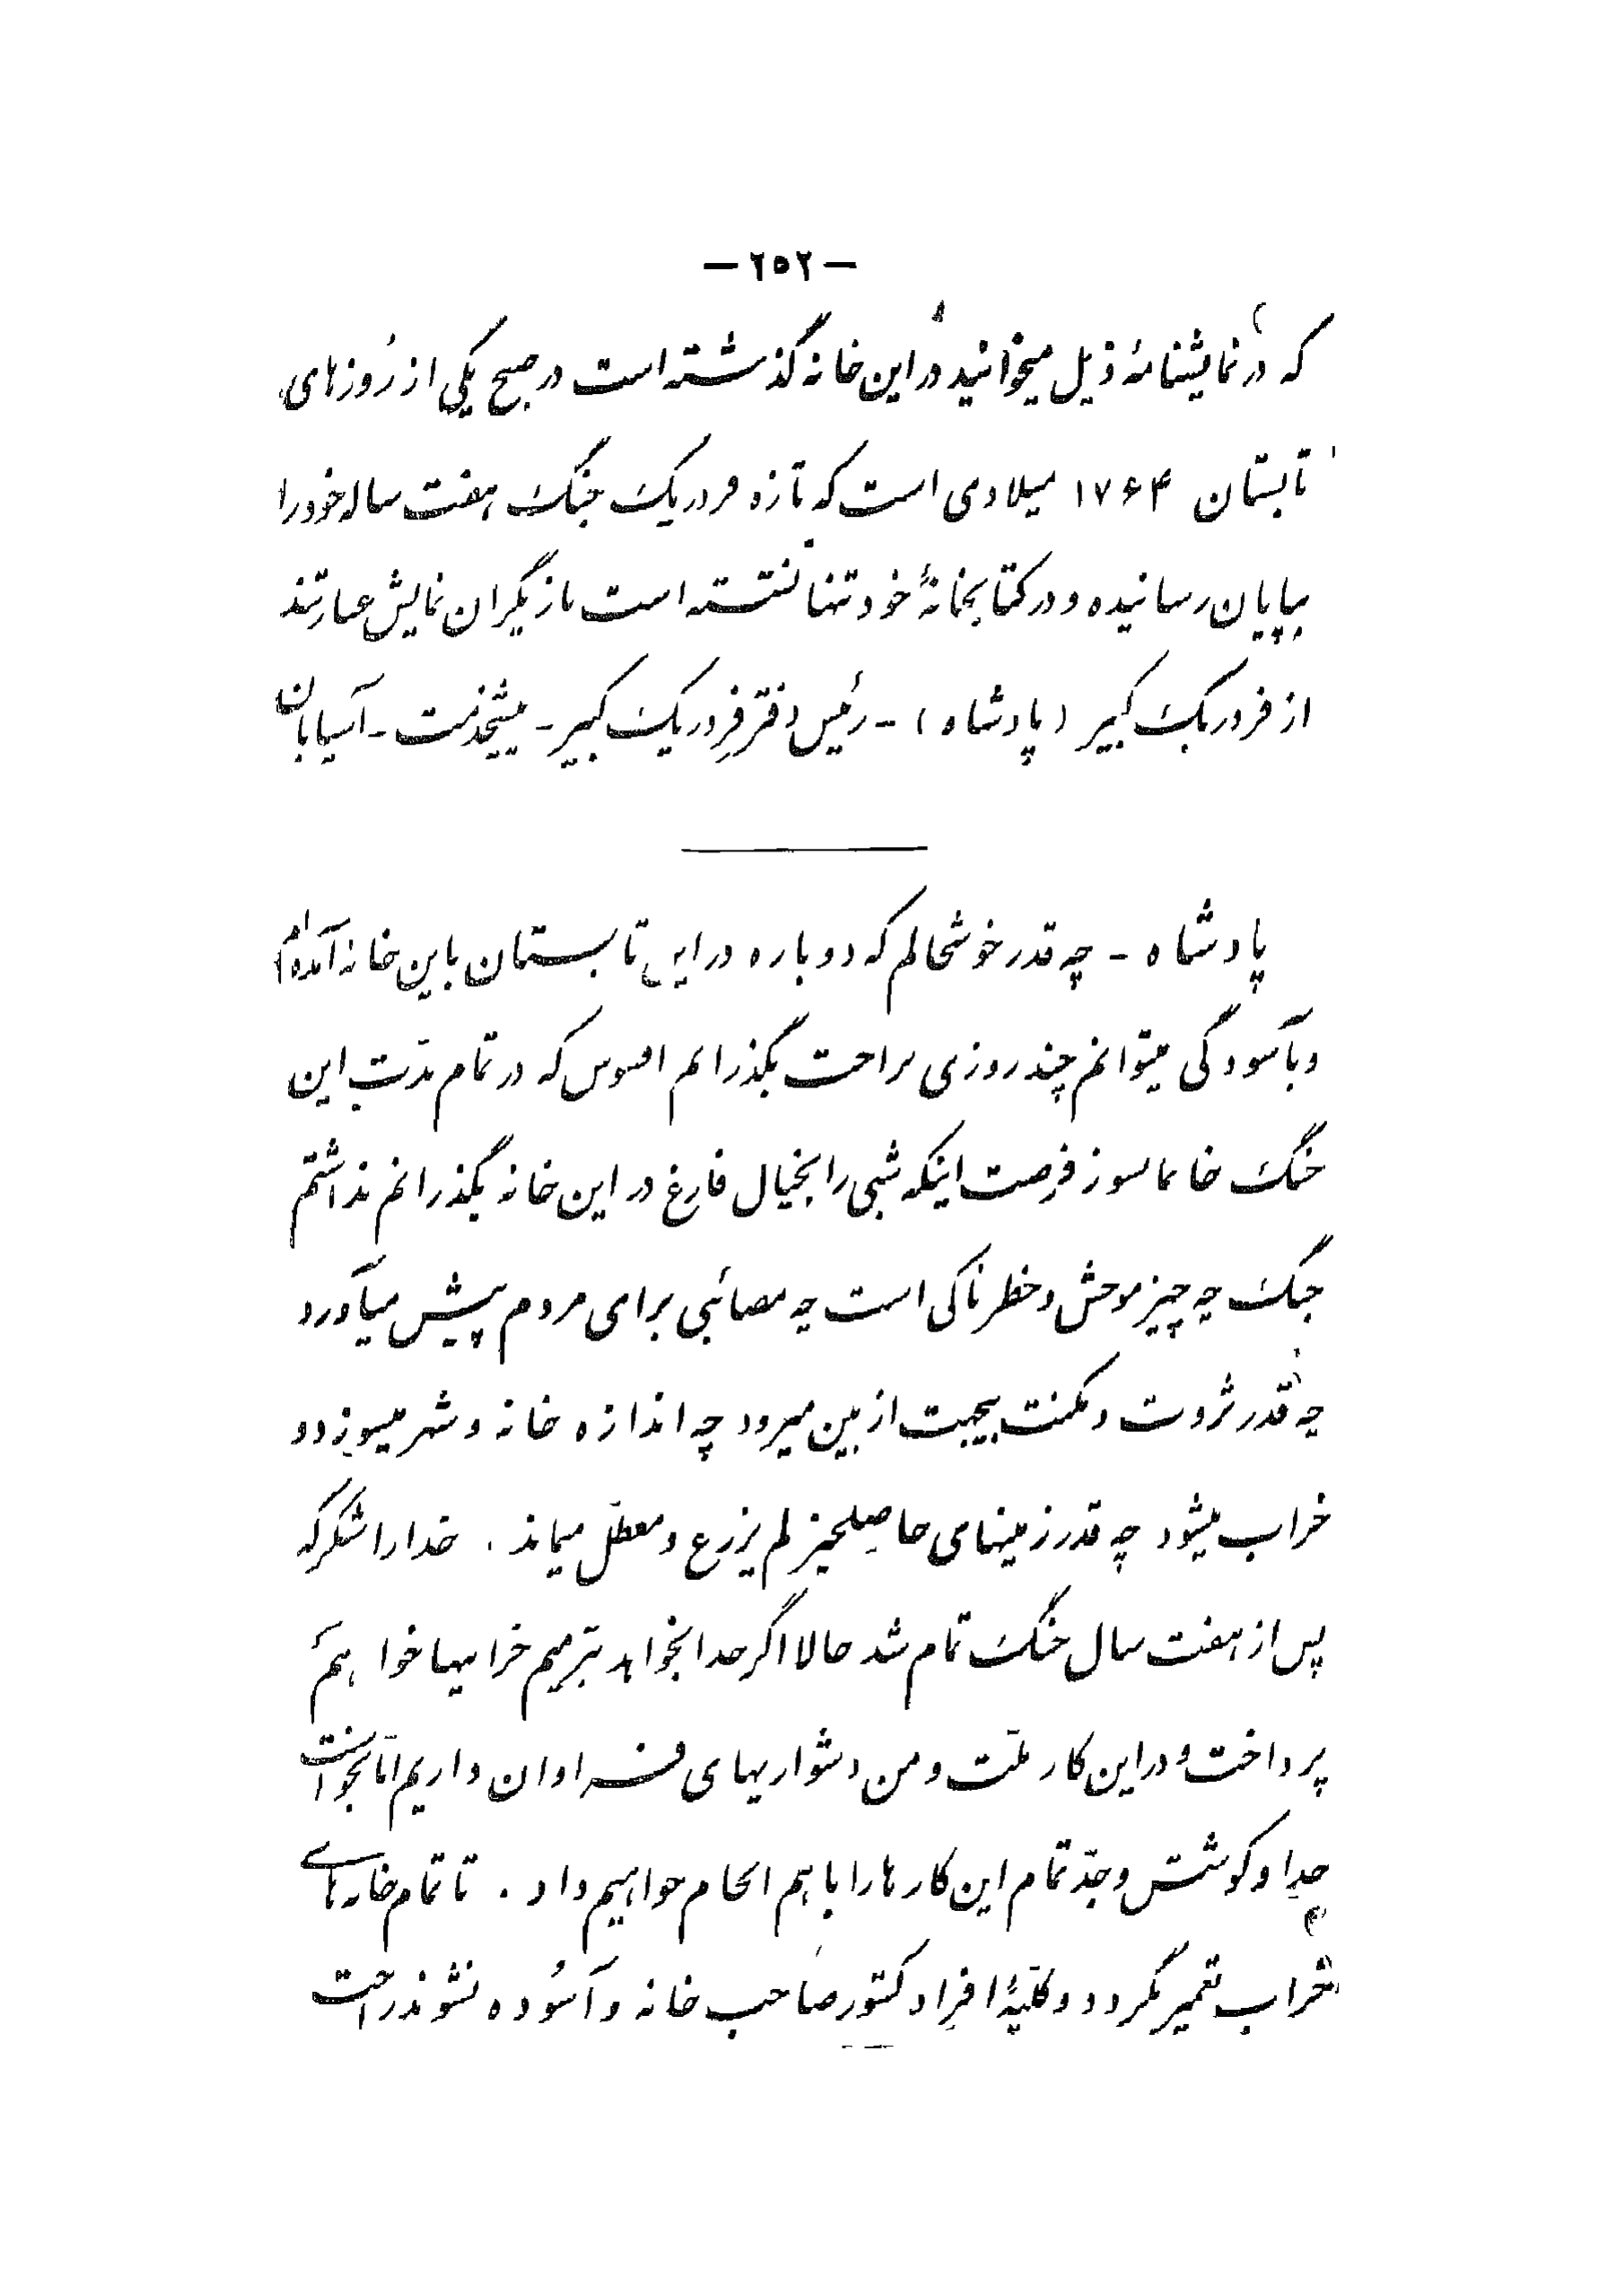 — ۲۵۲ —
که در نمایشنامهٔ ذیل میخوانید در این خانه گذشته است در صبح یکی از روزهای
تابستان ۱۷۶۴ میلادی است که تازه فردریک جنگ هفت ساله خود را
بپایان رسانیده و در کتابخانهٔ خود تنها نشسته است بازیگران نمایش عبارتند
از فردریک کبیر (پادشاه) - رئیس دفتر فردریک کبیر - پیشخدمت - آسیابان
پادشاه - چه قدر خوشحالم که دوباره در این تابستان باین خانه آمده‌ام
و بآسودگی میتوانم چند روزی براحت بگذرانم افسوس که در تمام مدّت این
جنگ خانمانسوز فرصت اینکه شبی را بخیال فارغ در این خانه بگذرانم نداشتم
جنگ چه چیز موحش و خطرناکی است چه مصائبی برای مردم پیش میآورد
چه قدر ثروت و مکنت بیجهت از بین میرود چه اندازه خانه و شهر میسوزد و
خراب میشود چه قدر زمینهای حاصلخیز لم یزرع و معطّل میماند . خدا را شکر که
پس از هفت سال جنگ تمام شد حالا اگر خدا بخواهد بترمیم خرابیها خواهیم
پرداخت و در این کار ملّت و من دشواریهای فراوان داریم امّا بخواست
خدا و کوشش و جدّ تمام این کارها را با هم انجام خواهیم داد . تا تمام خانه‌های
خراب تعمیر نگردد و کلیّهٔ افراد کشور صاحب خانه و آسوده نشوند راحت